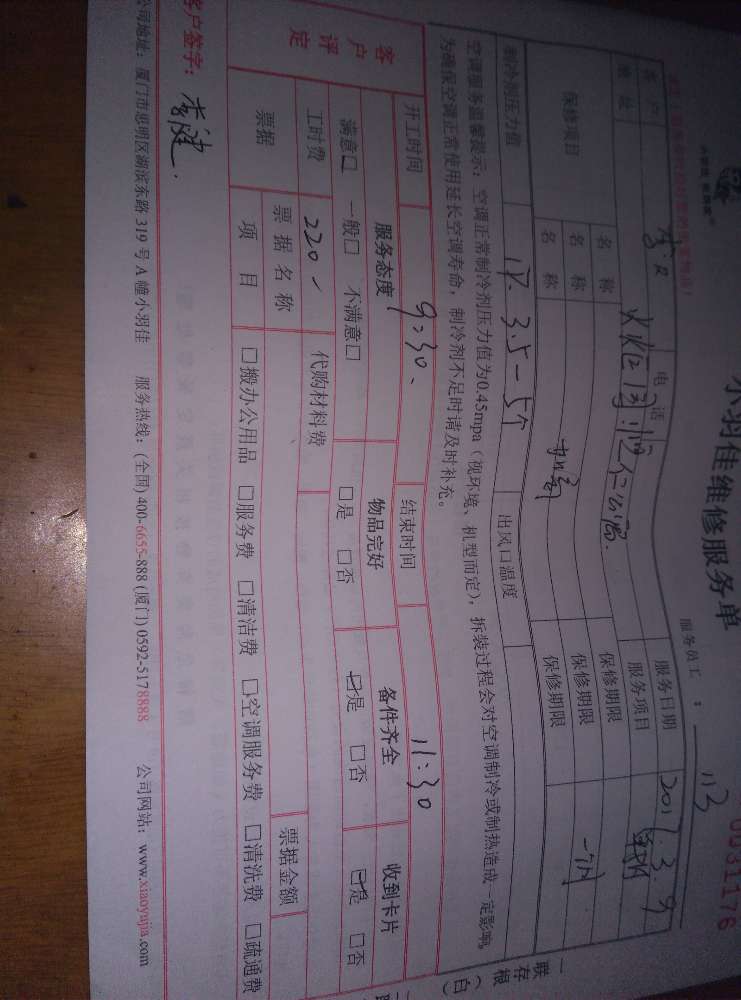 小羽佳维修服务单
0031176
服务员工： 113
客户 电话 服务日期 2017.3.9
地址 服务项目
保修项目 名称 保修期限
名称 保修期限 一个月
名称 保修期限
制冷剂压力值 出风口温度
空调服务温馨提示：空调正常制冷剂压力值为0.45mpa（视环境、机型而定），拆装过程会对空调制冷或制热造成一定影响。
为确保空调正常使用延长空调寿命，制冷剂不足时请及时补充。
开工时间 9:30 结束时间 11:30
客户评定 服务态度 物品完好 备件齐全 收到卡片
满意□ 一般□ 不满意□ □是 □否 ☑是 □否 ☑是 □否
工时费 220 代购材料费
票据 票据名称 票据金额
项目 □搬办公用品 □服务费 □清洁费 □空调服务费 □清洗费 □疏通费
客户签字： 李健
公司地址：厦门市思明区湖滨东路 319 号 A 幢小羽佳 服务热线：(全国) 400-6655-888 (厦门) 0592-5178888 公司网站：www.xiaoyujia.com
一存根（白）联